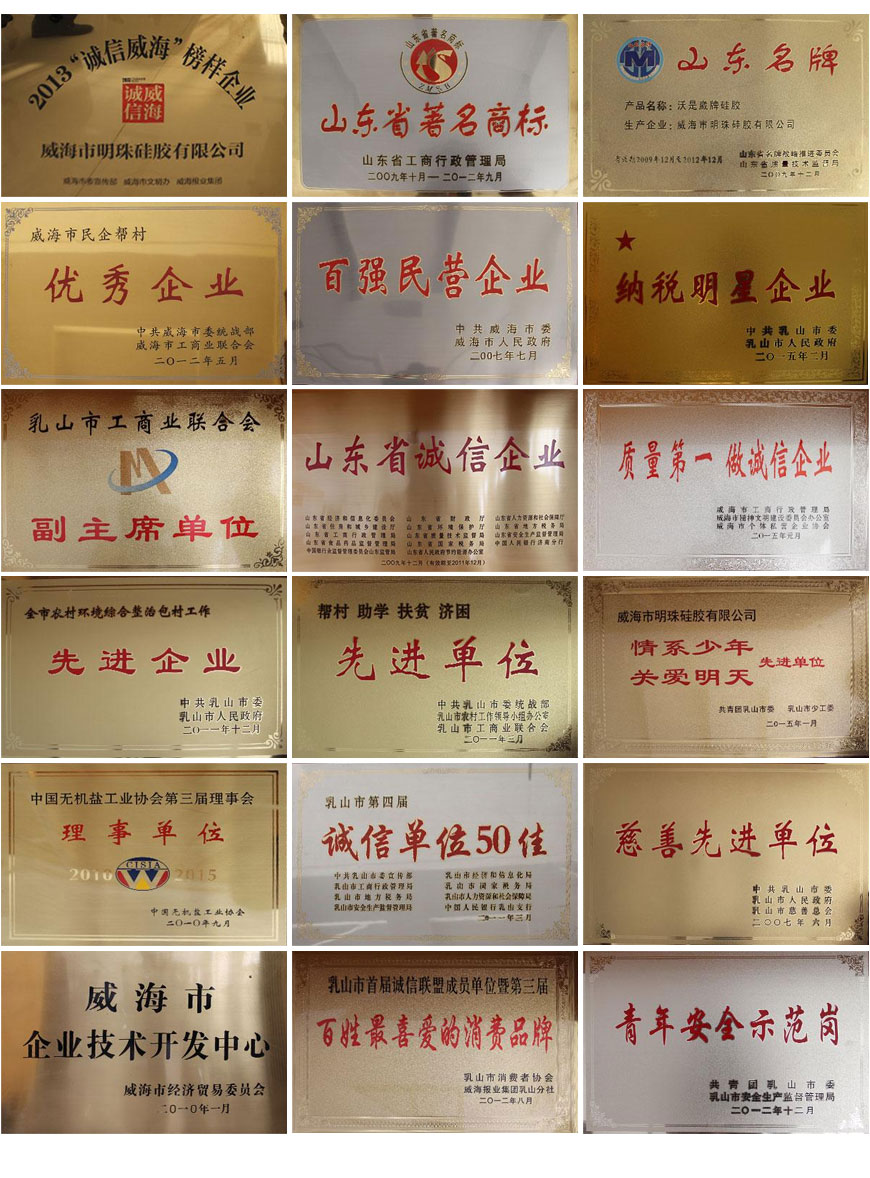 2013“诚信威海”榜样企业
诚信
威海
威海市明珠硅胶有限公司
威海市委宣传部 威海市文明办 威海报业集团
山东省著名商标
ZMSB
山东省著名商标
山东省工商行政管理局
二〇〇九年十月—二〇一二年九月
山东名牌
产品名称：沃是崴牌硅胶
生产企业：威海市明珠硅胶有限公司
有效期2009年12月至2012年12月
山东省名牌战略推进委员会
山东省质量技术监督局
二〇〇九年十二月
威海市民企帮村
优秀企业
中共威海市委统战部
威海市工商业联合会
二〇一二年五月
百强民营企业
中共威海市委
威海市人民政府
二〇〇七年七月
纳税明星企业
中共乳山市委
乳山市人民政府
二〇一五年二月
乳山市工商业联合会
副主席单位
山东省诚信企业
山东省经济和信息化委员会 山东省财政厅 山东省人力资源和社会保障厅
山东省住房和城乡建设厅 山东省环境保护厅 山东省地方税务局
山东省工商行政管理局 山东省质量技术监督局 山东省安全生产监督管理局
山东省食品药品监督管理局 山东省国家税务局 中国人民银行济南分行
中国银行业监督管理委员会山东监管局 山东省人民政府节约能源办公室
二〇〇九年十二月（有效期至2011年12月）
质量第一 做诚信企业
威海市工商行政管理局
威海市精神文明建设委员会办公室
威海市个体私营企业协会
二〇一五年元月
全市农村环境综合整治包村工作
先进企业
中共乳山市委
乳山市人民政府
二〇一一年十二月
帮村 助学 扶贫 济困
先进单位
中共乳山市委统战部
乳山市农村工作领导小组办公室
乳山市工商业联合会
二〇一一年三月
威海市明珠硅胶有限公司
情系少年
关爱明天 先进单位
共青团乳山市委 乳山市少工委
二〇一五年一月
中国无机盐工业协会第三届理事会
理事单位
2010 CISIA 2015
中国无机盐工业协会
二〇一〇年九月
乳山市第四届
诚信单位50佳
中共乳山市委宣传部 乳山市经济和信息化局
乳山市工商行政管理局 乳山市国家税务局
乳山市地方税务局 乳山市人力资源和社会保障局
乳山市安全生产监督管理局 中国人民银行乳山支行
二〇一一年三月
慈善先进单位
中共乳山市委
乳山市人民政府
乳山市慈善总会
二〇〇七年六月
威海市
企业技术开发中心
威海市经济贸易委员会
二〇一〇年一月
乳山市首届诚信联盟成员单位暨第三届
百姓最喜爱的消费品牌
乳山市消费者协会
威海报业集团乳山分社
二〇一二年八月
青年安全示范岗
共青团乳山市委
乳山市安全生产监督管理局
二〇一二年十二月